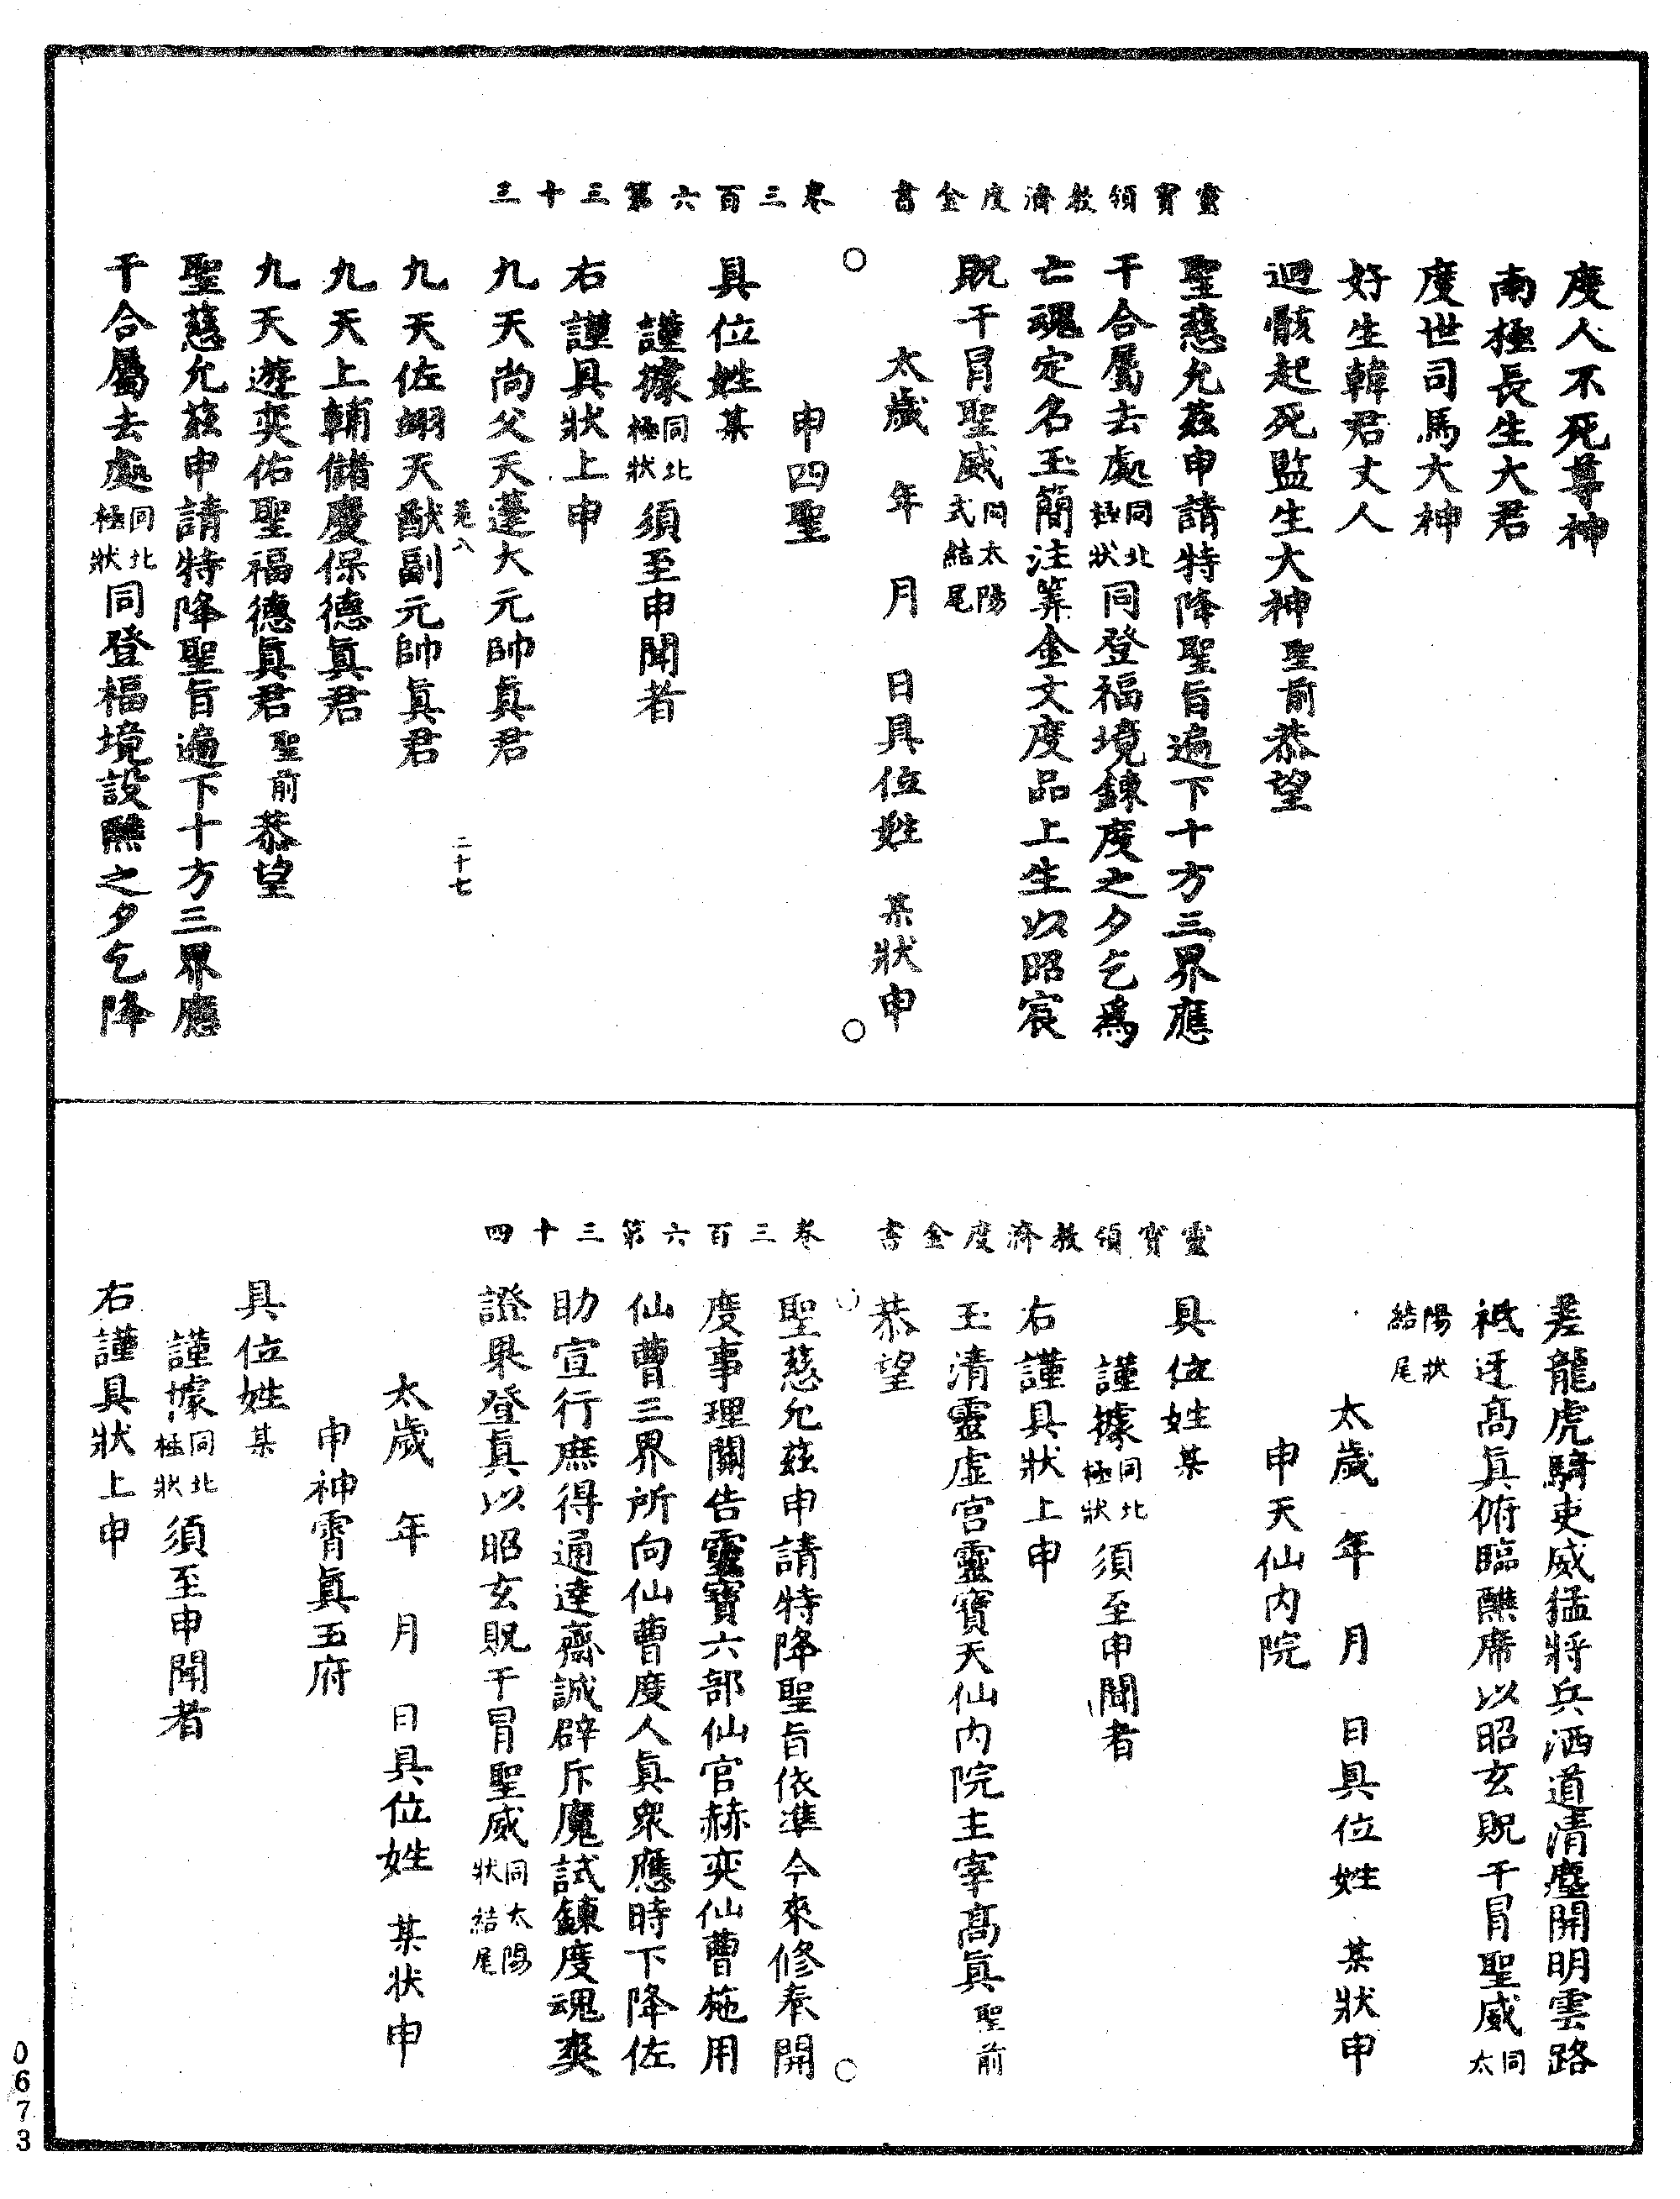 靈寶領教濟度金書　卷三百六第三十三
度人不死尊神
南極長生大君
度世司馬大神
好生韓君丈人
迴骸起死監生大神聖前恭望
聖慈允茲申請特降聖旨遍下十方三界應
干合屬去處同北極狀同登福境鍊度之夕乞爲
亡魂定名玉簡注筭金文度品上生以昭宸
貺干冒聖威同太陽式結尾
太歲　年　月　日具位姓　某狀申
申四聖
具位姓某
謹據同北極狀須至申聞者
右謹具狀上申
九天尚父天蓬大元帥眞君
二十七
九天佐翊天猷副元帥眞君
九天上輔儲慶保德眞君
九天遊奕佑聖福德眞君聖前恭望
聖慈允茲申請特降聖旨遍下十方三界應
干合屬去處同北極狀同登福境設醮之夕乞降
靈寶領教濟度金書　卷三百六第三十四
差龍虎騎吏威猛將兵洒道清塵開明雲路
祗迓高眞俯臨醮席以昭玄貺干冒聖威同太
陽狀結尾
太歲　年　月　日具位姓　某狀申
申天仙內院
具位姓某
謹據同北極狀須至申聞者
右謹具狀上申
玉清靈虛宮靈寶天仙內院主宰高眞聖前
恭望
聖慈允茲申請特降聖旨依準今來修奉開
度事理關告靈寶六部仙官赫奕仙曹施用
仙曹三界所向仙曹度人眞衆應時下降佐
助宣行庶得通達齋誠辟斥魔試鍊度魂爽
證果登眞以昭玄貺干冒聖威同太陽狀結尾
太歲　年　月　日具位姓　某狀申
申神霄眞王府
具位姓某
謹據同北極狀須至申聞者
右謹具狀上申
0673